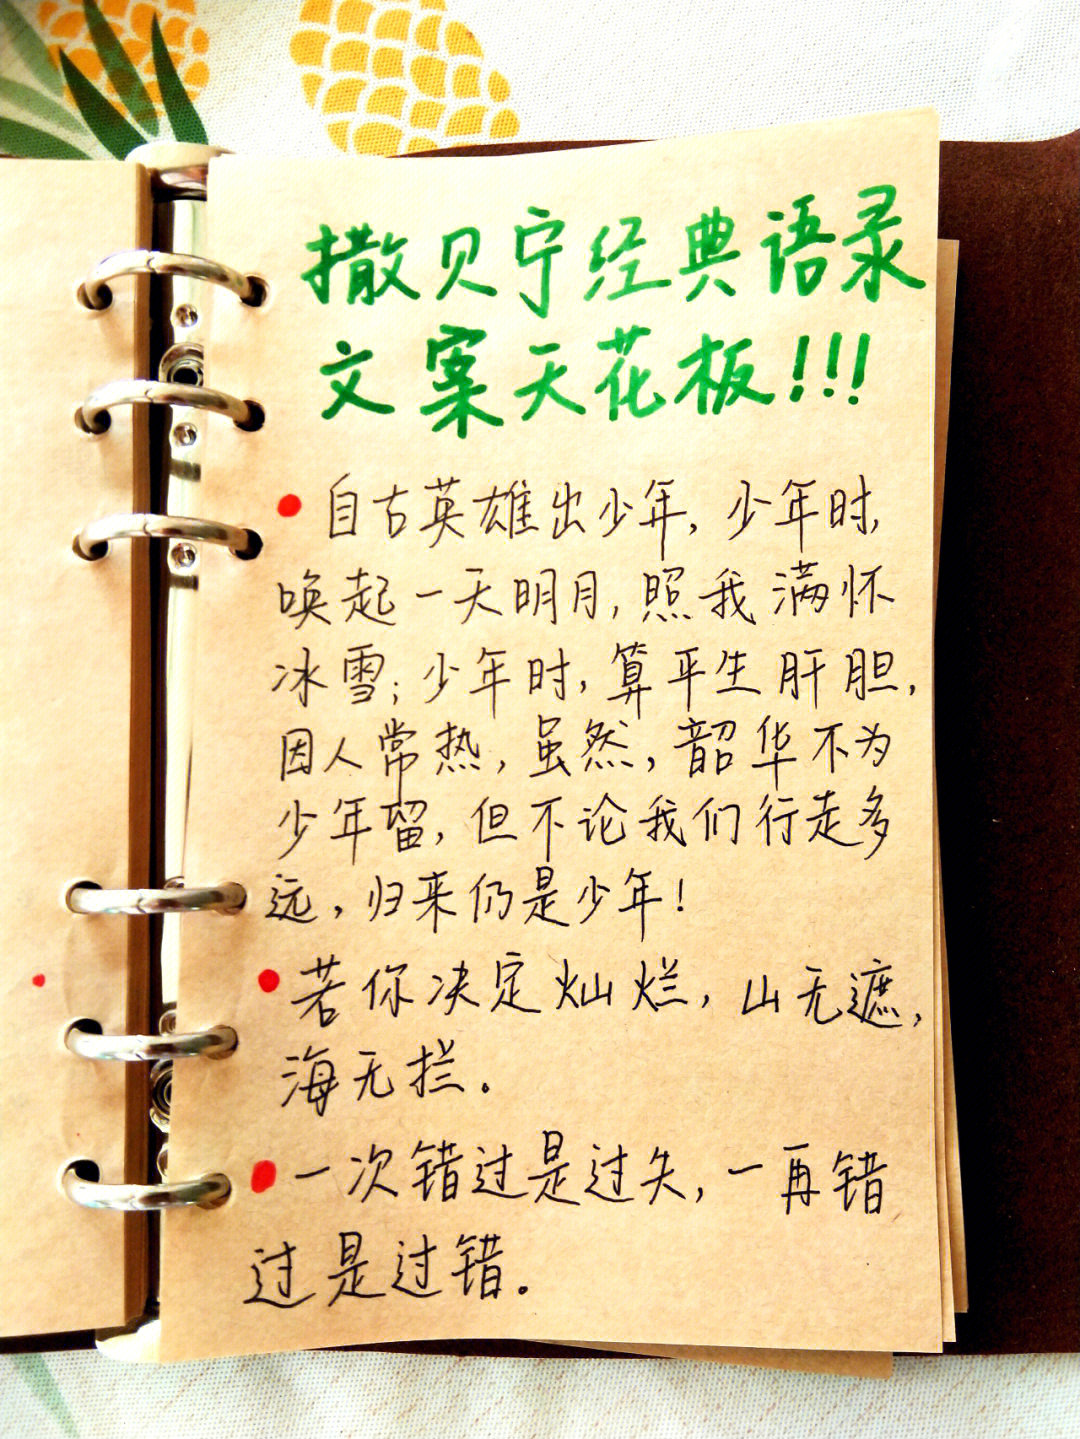 撒贝宁经典语录
文案天花板!!!
自古英雄出少年,少年时,
唤起一天明月,照我满怀
冰雪;少年时,算平生肝胆,
因人常热,虽然,韶华不为
少年留,但不论我们行走多
远,归来仍是少年!
若你决定灿烂,山无遮,
海无拦。
一次错过是过失,一再错
过是过错。